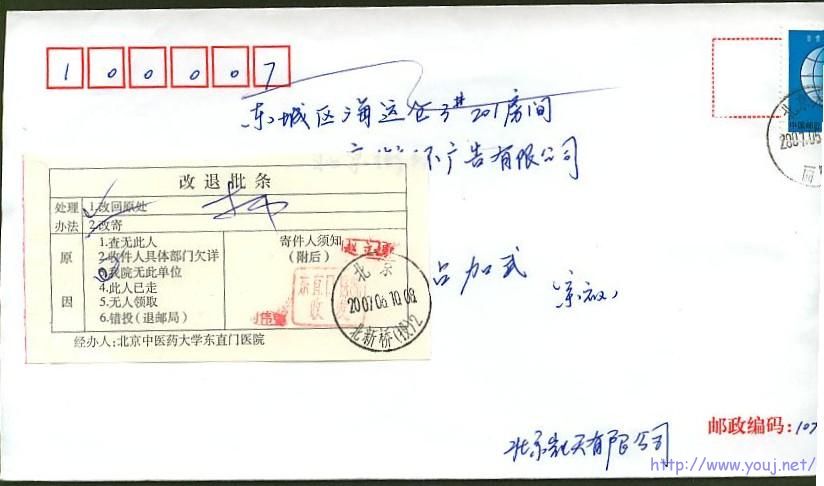 100007
东城区海运仓3#201房间
广告有限公司
改退批条
处理办法
1.改回原处
2.改寄
原因
1.查无此人
2.收件人具体部门欠详
3.我院无此单位
4.此人已走
5.无人领取
6.错投(退邮局)
寄件人须知
(附后)
经办人:北京中医药大学东直门医院
北京
2007.06.10.08
北新桥(投)2
东直门
收发
北京
2007.05
中国邮政
邮政编码:
北京 有限公司
http://www.youj.net/